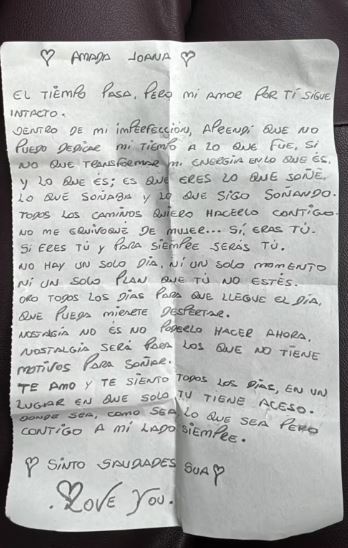 ♡ AMADA JOANA ♡
EL TIEMPO PASA, PERO MI AMOR POR TÍ SIGUE
INTACTO.
DENTRO DE MI IMPERFECCIÓN, APRENDÍ QUE NO
PUEDO DEDICAR MI TIEMPO A LO QUE FUE, SI
NO QUE TRANSFORMAR MI ENERGIA EN LO QUE ÉS.
Y LO QUE ÉS; ES QUE ERES LO QUE SOÑÉ.
LO QUE SOÑABA Y LO QUE SIGO SOÑANDO.
TODOS LOS CAMINOS QUIERO HACERLO CONTIGO.
NO ME EQUIVOQUE DE MUJER... SÍ, ERAS TÚ.
SI ERES TÚ Y PARA SIEMPRE SERÁS TÚ.
NO HAY UN SOLO DÍA, NI UN SOLO MOMENTO
NI UN SOLO PLAN QUE TÚ NO ESTÉS.
ORO TODOS LOS DÍAS PARA QUE LLEGUE EL DÍA,
QUE PUEDA MIRARTE DESPERTAR.
NOSTALGIA NO ÉS NO PODERLO HACER AHORA,
NOSTALGIA SERÁ PARA LOS QUE NO TIENE
MOTIVOS PARA SOÑAR.
TE AMO Y TE SIENTO TODOS LOS DÍAS, EN UN
LUGIAR EN QUE SOLO TU TIENE ACESO.
DONDE SEA, COMO SEA, LO QUE SEA PERO
CONTIGO A MI LADO SIEMPRE.
♡ SINTO SAUDADES SUA ♡
. LOVE YOU.